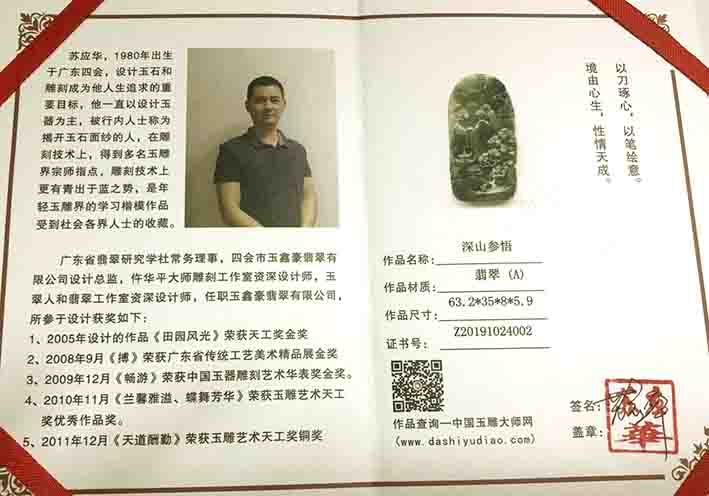 苏应华，1980年出生
于广东四会，设计玉石和
雕刻成为他人生追求的重
要目标，他一直以设计玉
器为主，被行内人士称为
揭开玉石面纱的人，在雕
刻技术上，得到多名玉雕
界宗师指点，雕刻技术上
更有青出于蓝之势，是年
轻玉雕界的学习楷模作品
受到社会各界人士的收藏。
广东省翡翠研究学社常务理事，四会市玉鑫豪翡翠有
限公司设计总监，仵华平大师雕刻工作室资深设计师，玉
翠人和翡翠工作室资深设计师，任职玉鑫豪翡翠有限公司，
所参于设计获奖如下：
1、2005年设计的作品《田园风光》荣获天工奖金奖
2、2008年9月《搏》荣获广东省传统工艺美术精品展金奖
3、2009年12月《畅游》荣获中国玉器雕刻艺术华表奖金奖。
4、2010年11月《兰馨雅溢、蝶舞芳华》荣获玉雕艺术天工
奖优秀作品奖。
5、2011年12月《天道酬勤》荣获玉雕艺术天工奖铜奖
以刀琢心，以笔绘意。
境由心生，性情天成。
作品名称：深山参悟
作品材质：翡翠（A）
作品尺寸：63.2*35*8*5.9
证书号：Z20191024002
作品查询—中国玉雕大师网
(www.dashiyudiao.com)
签名：
盖章：